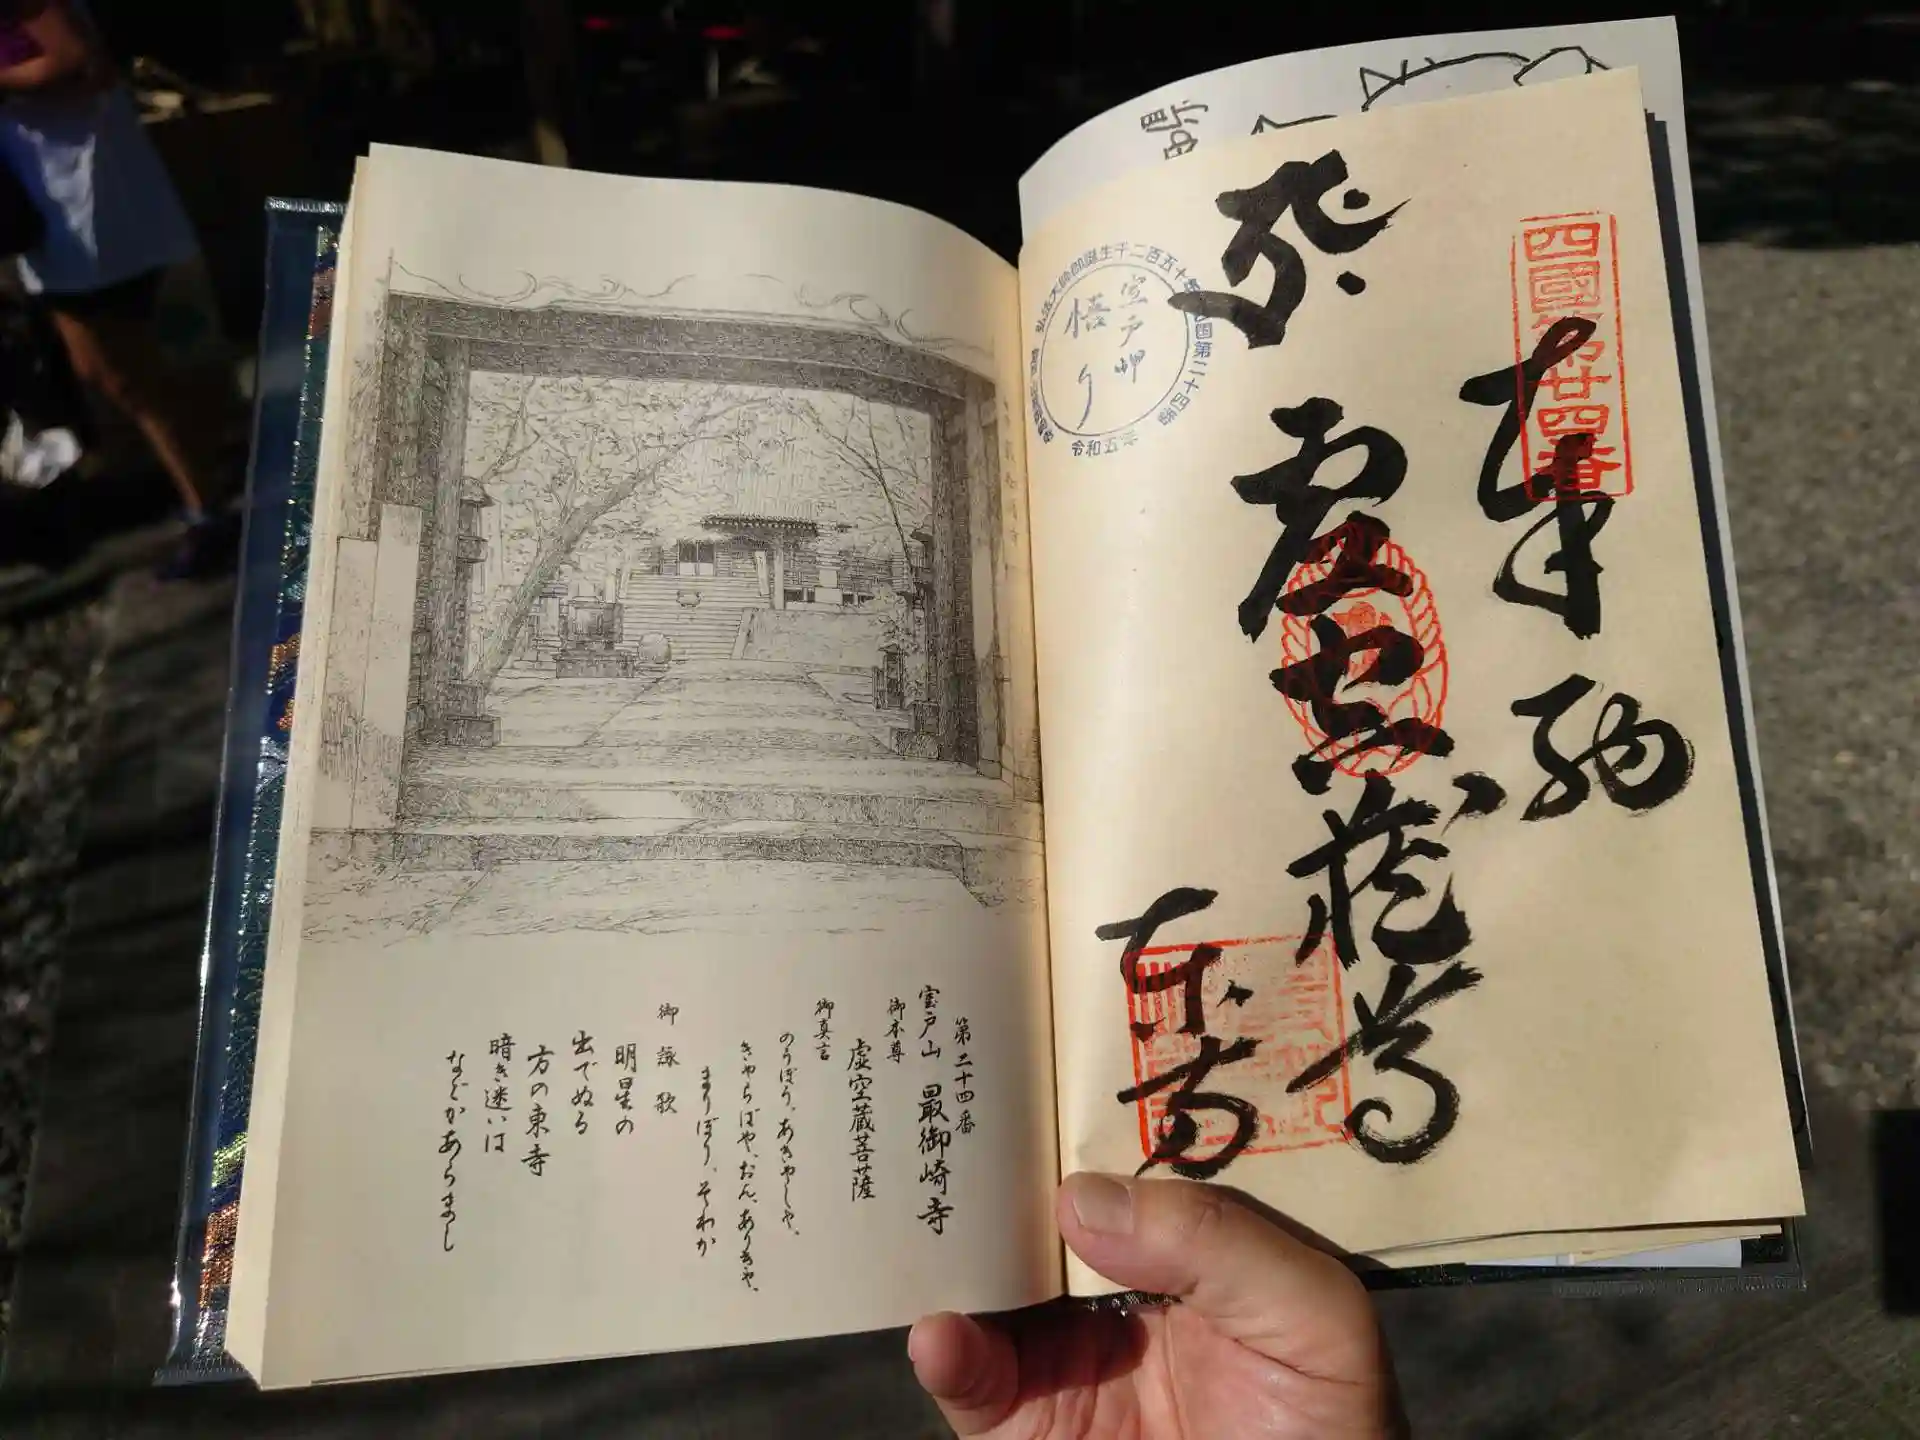 四國第廿四番
奉納
虚空蔵尊
東寺
弘法大師御誕生千二百五十年
四国第二十四番
令和五年
室戸岬
悟り
第二十四番
室戸山 最御崎寺
御本尊
虚空蔵菩薩
御真言
のうぼう、あきゃしゃ、
きゃらばや、おん、ありきゃ、
まりぼり、そわか
御詠歌
明星の
出でぬる
方の東寺
暗き迷いは
などかあらまし